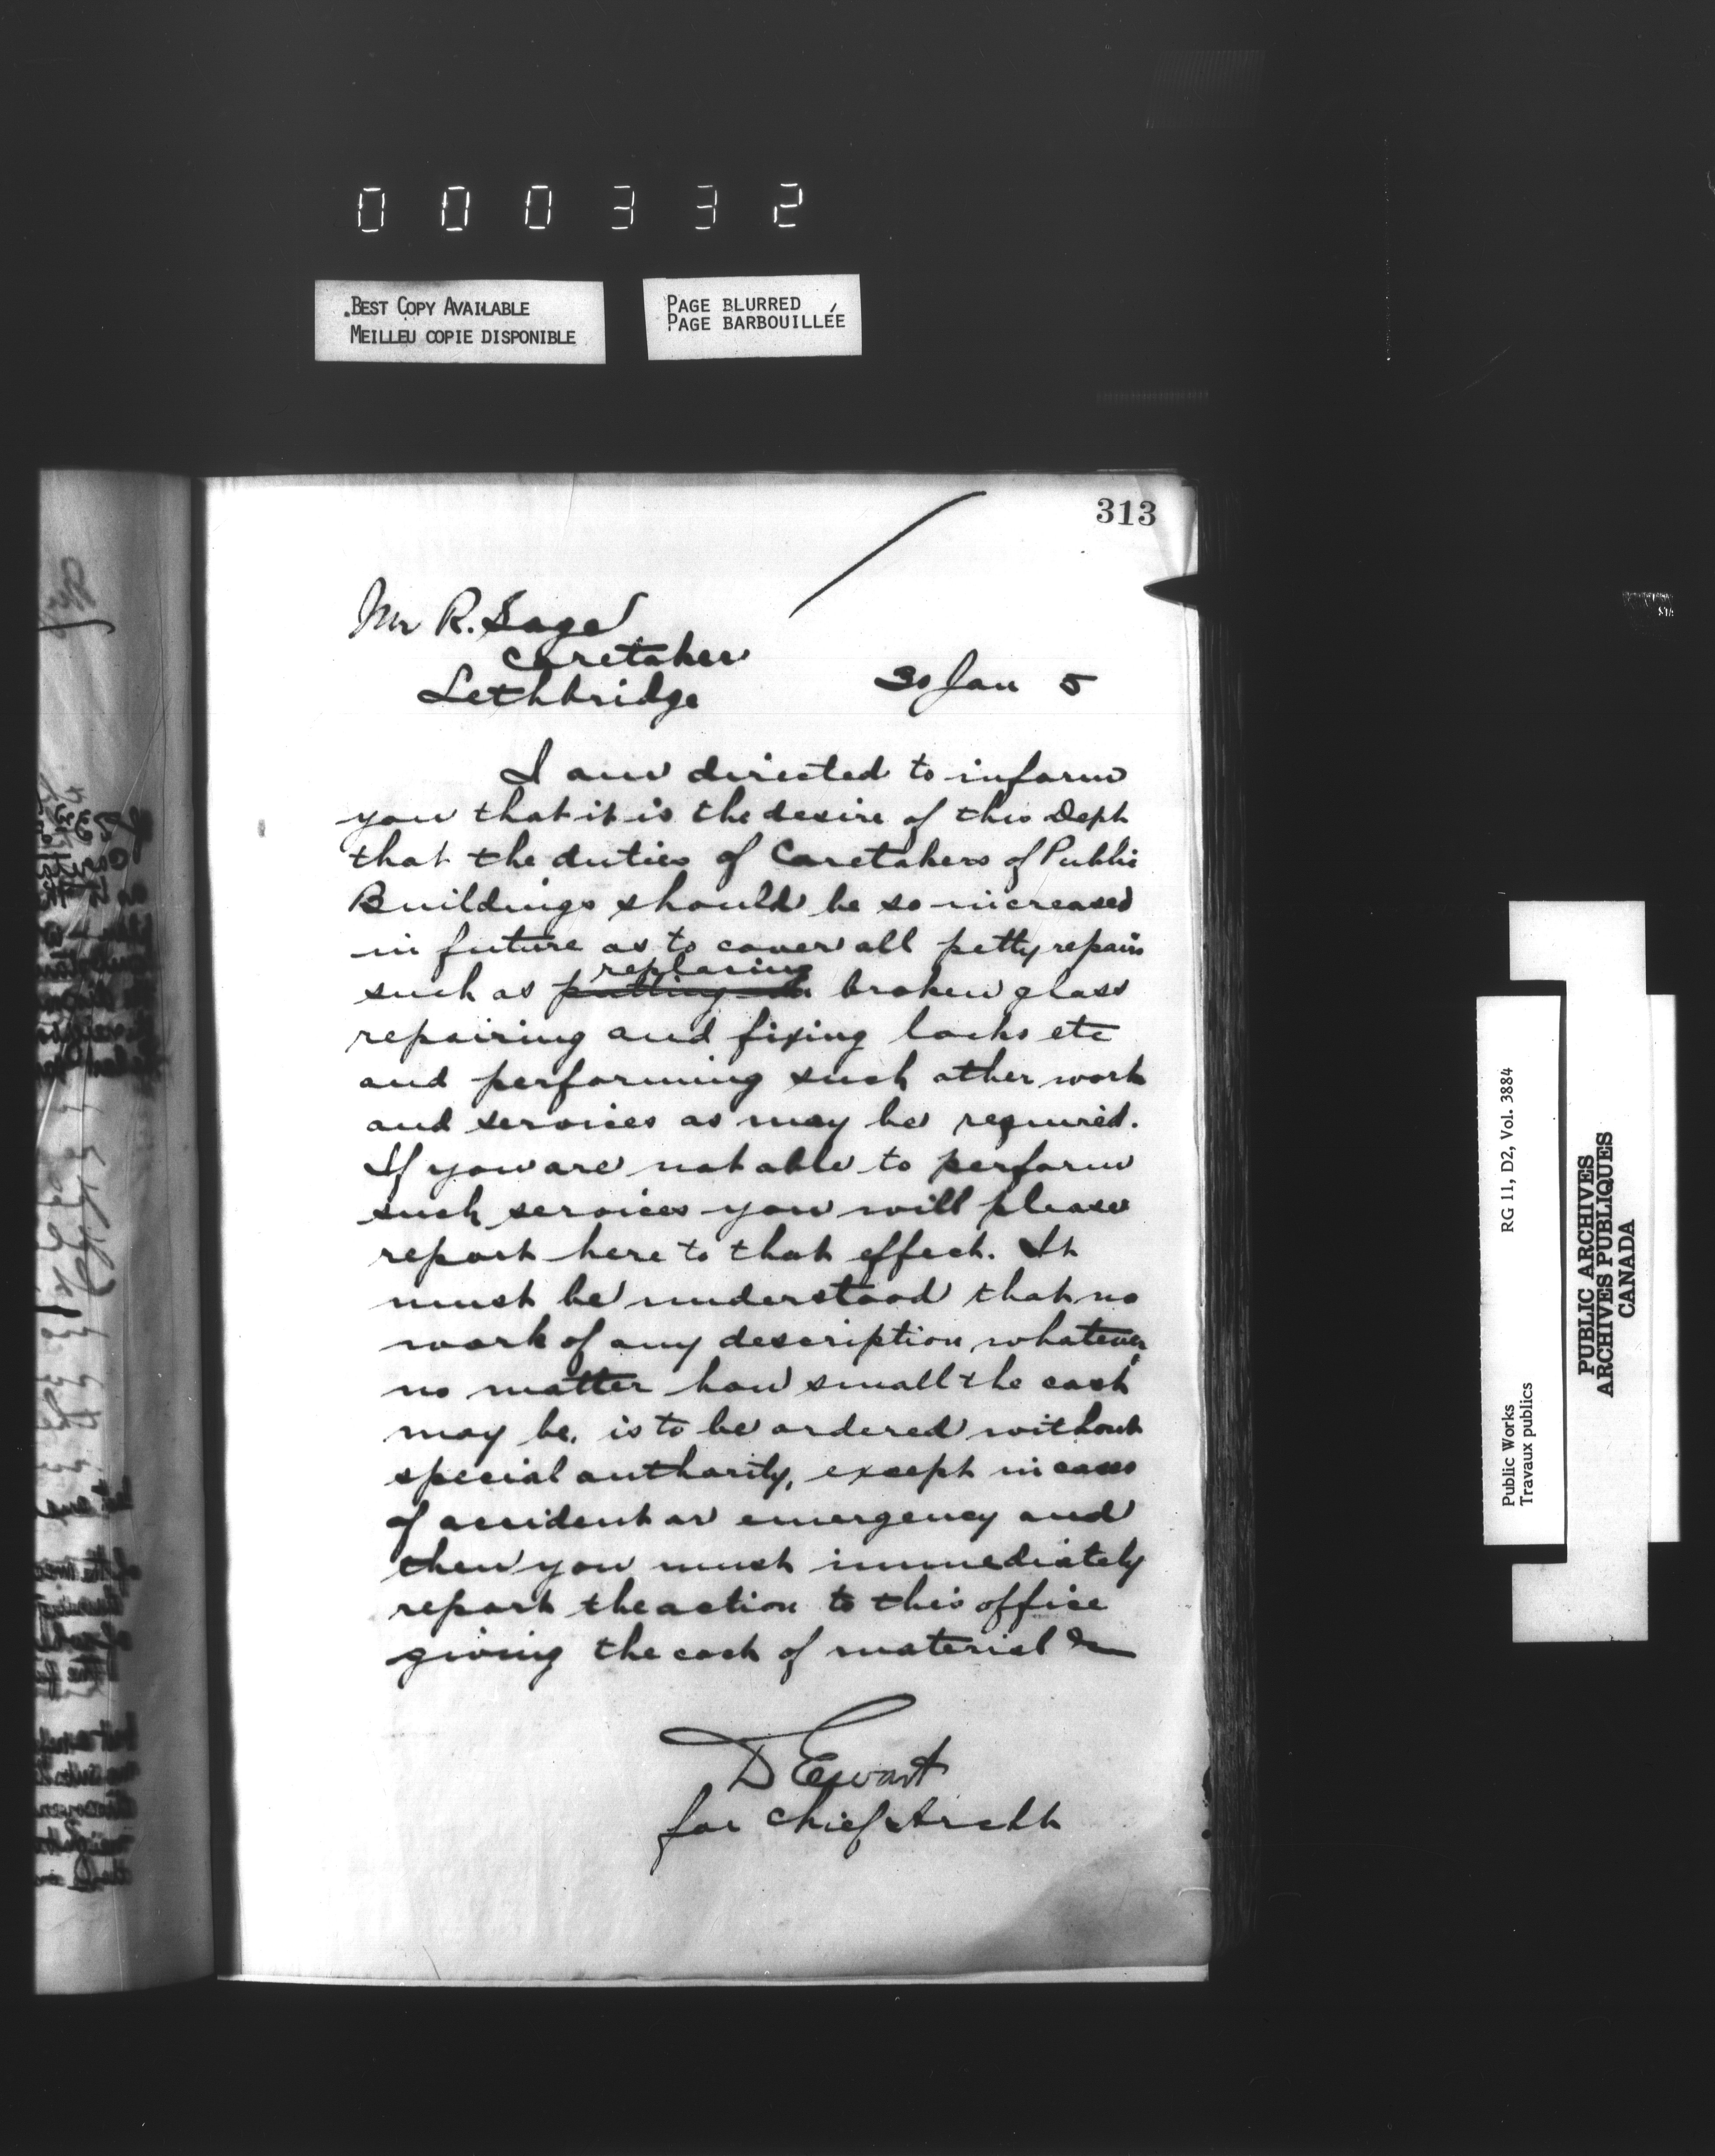 000332
BEST COPY AVAILABLE
MEILLEU COPIE DISPONIBLE
PAGE BLURRED
PAGE BARBOUILLÉE
313
Mr R. Sage
Caretaker
Lethbridge
30 Jan 5
I am directed to inform
you that it is the desire of this Dept
that the duties of Caretakers of Public
Buildings should be so increased
in future as to cover all petty repairs
replacing
such as putting in broken glass
repairing and fixing locks etc
and performing such other work
and services as may be required.
If you are not able to perform
such services you will please
report here to that effect. It
must be understood that no
work of any description whatever,
no matter how small the cost
may be, is to be ordered without
special authority, except in cases
of accident or emergency and
then you must immediately
report the action to this office
giving the cost of material &
D Ewart
for Chief Archt
RG 11, D2, Vol. 3884
Public Works
Travaux publics
PUBLIC ARCHIVES
ARCHIVES PUBLIQUES
CANADA